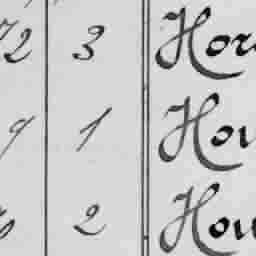 72 3 Hor
9 1 Hou
2 Hou